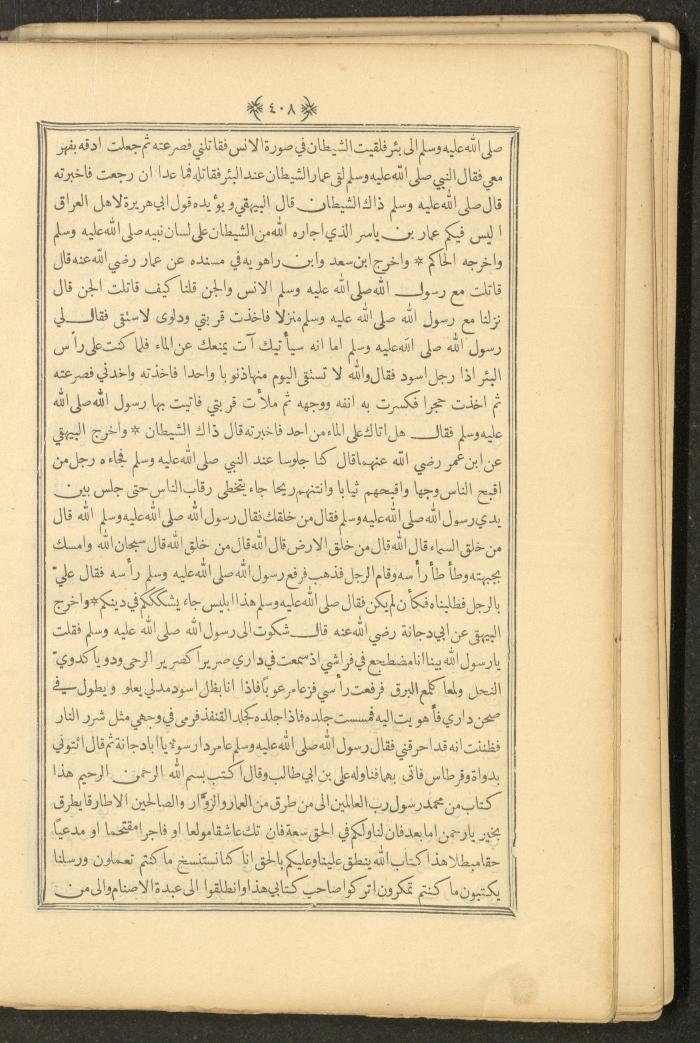 ﴿ ٤٠٨ ﴾
صلى الله عليه وسلم الى بئر فلقيت الشيطان في صورة الانس فقاتلني فصرعته ثم جعلت ادقه بفهر
معي فقال النبي صلى الله عليه وسلم لقى عمار الشيطان عند البئر فقاتله فما عدا ان رجعت فاخبرته
قال صلى الله عليه وسلم ذاك الشيطان قال البيهقي و يؤيده قول ابي هريرة لاهل العراق
اليس فيكم عمار بن ياسر الذي اجاره الله من الشيطان على لسان نبيه صلى الله عليه وسلم
واخرجه الحاكم * واخرج ابن سعد وابن راهويه في مسنده عن عمار رضي الله عنه قال
قاتلت مع رسول الله صلى الله عليه وسلم الانس والجن قلنا كيف قاتلت الجن قال
نزلنا مع رسول الله صلى الله عليه وسلم منزلا فاخذت قربتي ودلوى لاستقى فقال لي
رسول الله صلى الله عليه وسلم اما انه سيأتيك آت يمنعك عن الماء فلما كنت على رأس
البئر اذا رجل اسود فقال والله لا تستقى اليوم منها ذنوبا واحدا فاخذته واخذني فصرعته
ثم اخذت حجرا فكسرت به انفه ووجهه ثم ملأت قربتي فاتيت بها رسول الله صلى الله
عليه وسلم فقال هل اتاك على الماء من احد فاخبرته قال ذاك الشيطان * واخرج البيهقي
عن ابن عمر رضي الله عنهما قال كنا جلوسا عند النبي صلى الله عليه وسلم فجاءه رجل من
اقبح الناس وجها واقبحهم ثيابا وانتنهم ريحا جاء يتخطى رقاب الناس حتى جلس بين
يدي رسول الله صلى الله عليه وسلم فقال من خلقك فقال رسول الله صلى الله عليه وسلم الله قال
من خلق السماء قال الله قال من خلق الارض قال الله قال من خلق الله قال سبحان الله وامسك
بجبهته وطأطأ رأسه وقام الرجل فذهب فرفع رسول الله صلى الله عليه وسلم رأسه فقال عليّ
بالرجل فطلبناه فكأن لم يكن فقال صلى الله عليه وسلم هذا ابليس جاء يشكككم في دينكم * واخرج
البيهقى عن ابي دجانة رضي الله عنه قال شكوت الى رسول الله صلى الله عليه وسلم فقلت
يا رسول الله بينا انا مضطجع في فراشي اذ سمعت في داري صريرا كصرير الرحى ودويا كدويّ
النحل ولمعا كلمع البرق فرفعت رأسي فزعا مرعوبا فاذا انا بظل اسود مدلي يعلو ويطول في
صحن داري فأهويت اليه فمسست جلده فاذا جلده كجلد القنفذ فرمى في وجهي مثل شرر النار
فظننت انه قد احرقني فقال رسول الله صلى الله عليه وسلم عامر دار سوء يا ابا دجانة ثم قال ائتوني
بدواة وقرطاس فاتى بهما فناوله علي بن ابي طالب وقال اكتب بسم الله الرحمن الرحيم هذا
كتاب من محمد رسول رب العالمين الى من طرق من العمار والزوّار والصالحين الا طارقا يطرق
بخير يا رحمن اما بعد فان لنا ولكم في الحق سعة فان تك عاشقا مولعا او فاجرا مقتحما او مدعيًا
حقا مبطلا هذا كتاب الله ينطق علينا وعليكم بالحق انا كنا نستنسخ ما كنتم تعملون ورسلنا
يكتبون ما كنتم تمكرون اتركوا صاحب كتابي هذا وانطلقوا الى عبدة الاصنام والى من